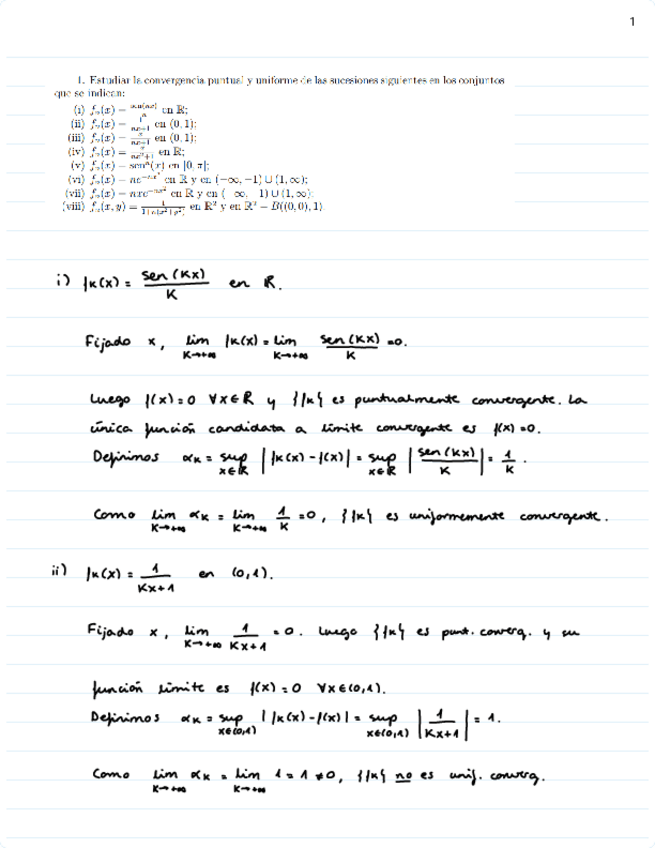 1
1. Estudiar la convergencia puntual y uniforme de las sucesiones siguientes en los conjuntos
que se indican:
(i) fₙ(x) = sen(nx)/n en ℝ;
(ii) fₙ(x) = 1/(nx+1) en (0, 1);
(iii) fₙ(x) = x/(nx+1) en (0, 1);
(iv) fₙ(x) = x/(nx²+1) en ℝ;
(v) fₙ(x) = senⁿ(x) en [0, π];
(vi) en ℝ y en (−∞, −1) ∪ (1, ∞);
(vii) en ℝ y en (−∞, 1) ∪ (1, ∞);
(viii) fₙ(x, y) = en ℝ² y en ℝ² − B((0, 0), 1).
i) fk(x) = sen(kx)/k en ℝ.
Fijado x, lim k→+∞ fk(x) = lim k→+∞ sen(kx)/k = 0.
Luego f(x) = 0 ∀x∈ℝ y {fk} es puntualmente convergente. La
única función candidata a límite convergente es f(x) = 0.
Definimos αk = sup x∈ℝ |fk(x) − f(x)| = sup x∈ℝ |sen(kx)/k| = 1/k.
Como lim k→+∞ αk = lim k→+∞ 1/k = 0, {fk} es uniformemente convergente.
ii) fk(x) = 1/(kx+1) en (0,1).
Fijado x, lim k→+∞ 1/(kx+1) = 0. Luego {fk} es punt. converg. y su
función límite es f(x) = 0 ∀x∈(0,1).
Definimos αk = sup x∈(0,1) |fk(x) − f(x)| = sup x∈(0,1) |1/(kx+1)| = 1.
Como lim k→+∞ αk = lim k→+∞ 1 = 1 ≠ 0, {fk} no es unif. converg.